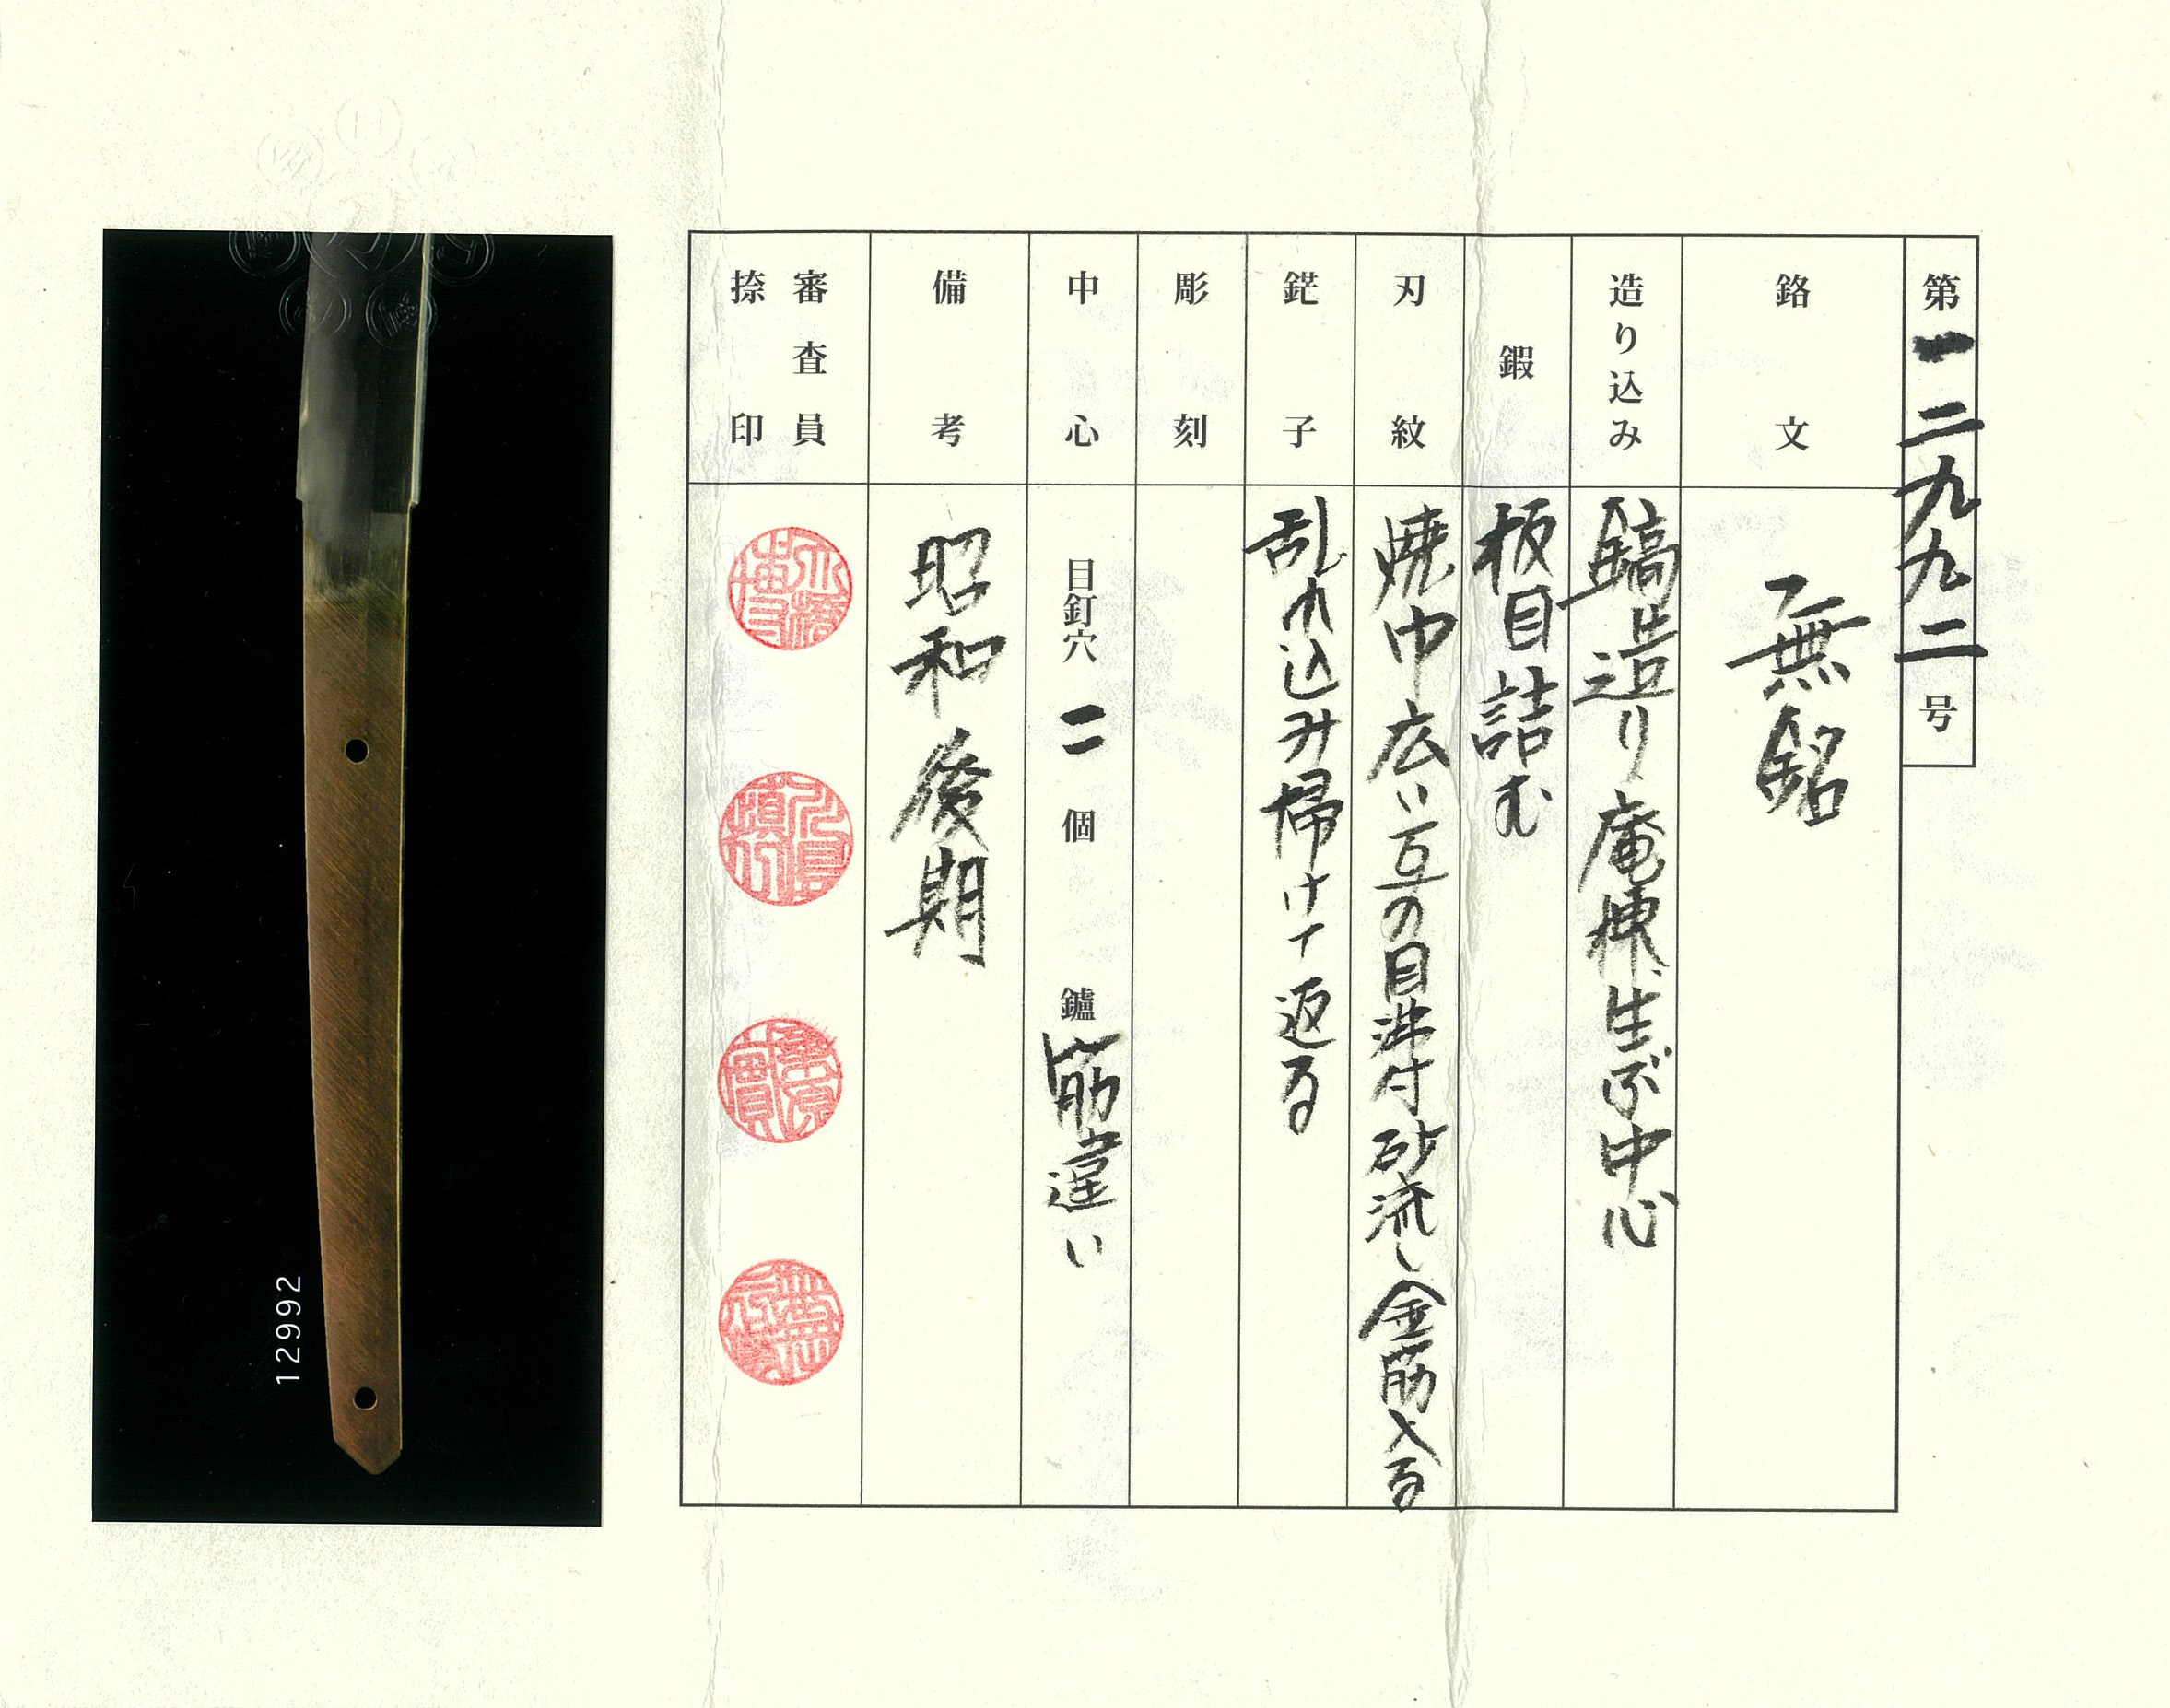 第一二九九二号
銘文 無銘
造り込み 鎬造り庵棟生ぶ中心
鍜 板目詰む
刃紋 焼巾広い互の目沸付砂流し金筋入る
鋩子 乱れ込み掃けて返る
彫刻
中心 目釘穴 二 個 鑢 筋違い
備考 昭和後期
審査員
捺印
12992